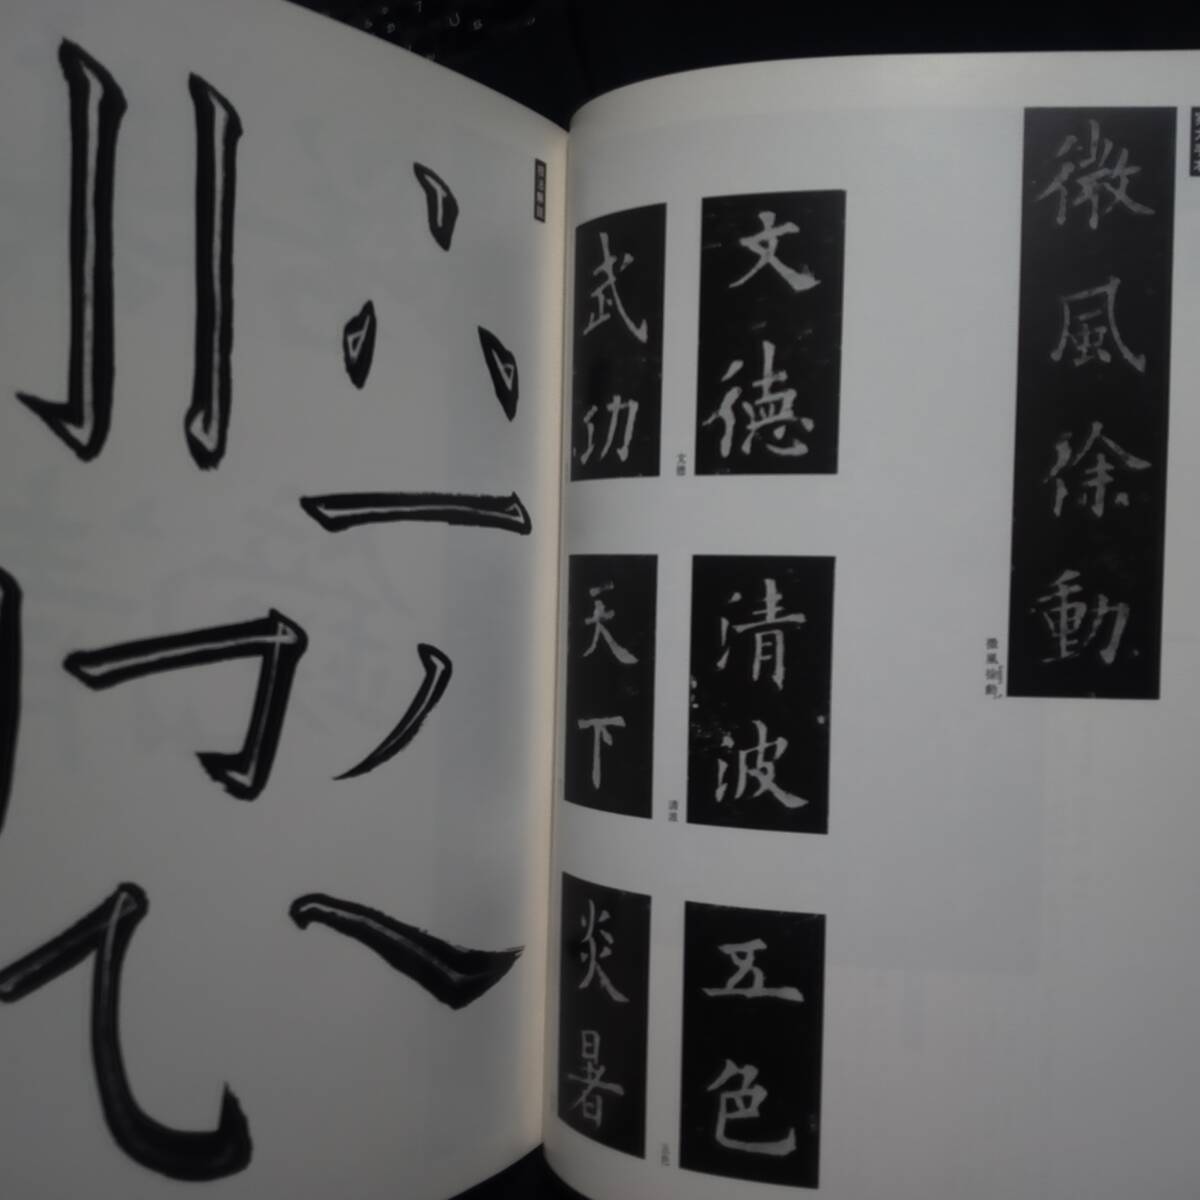 微風徐動
微風徐動
文德
文德
清波
清波
五色
五色
武功
天下
炎暑